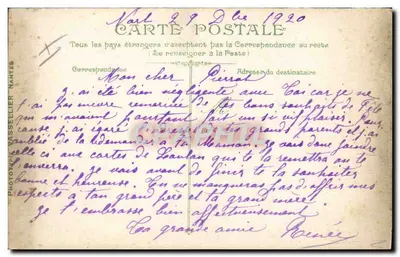 Nort 29 Dbre 1920
CARTE POSTALE
Tous les pays étrangers n'acceptent pas la Correspondance au recto
(Se renseigner à la Poste)
Correspondance
Adresse du destinataire
Mon cher Pierrot
J'ai été bien négligente avec toi car je ne
t'ai pas encore remercié de tes bons souhaits de Fête
qui m'avaient pourtant fait un si plaisir.
cause j'ai égaré grands parents et j'ai
oublié de la redemander à ta Maman, je vais donc joindre
celle ci aux cartes de qui te la remettra ou te
l'enverra. Je vais avant de finir te la souhaiter
bonne et heureuse. Tu ne manqueras pas d'offrir mes
respects à ton grand père et ta grand mère.
Je t'embrasse bien affectueusement
Ta grande amie Renée
PHOTOTYPIE VASSELLIER NANTES